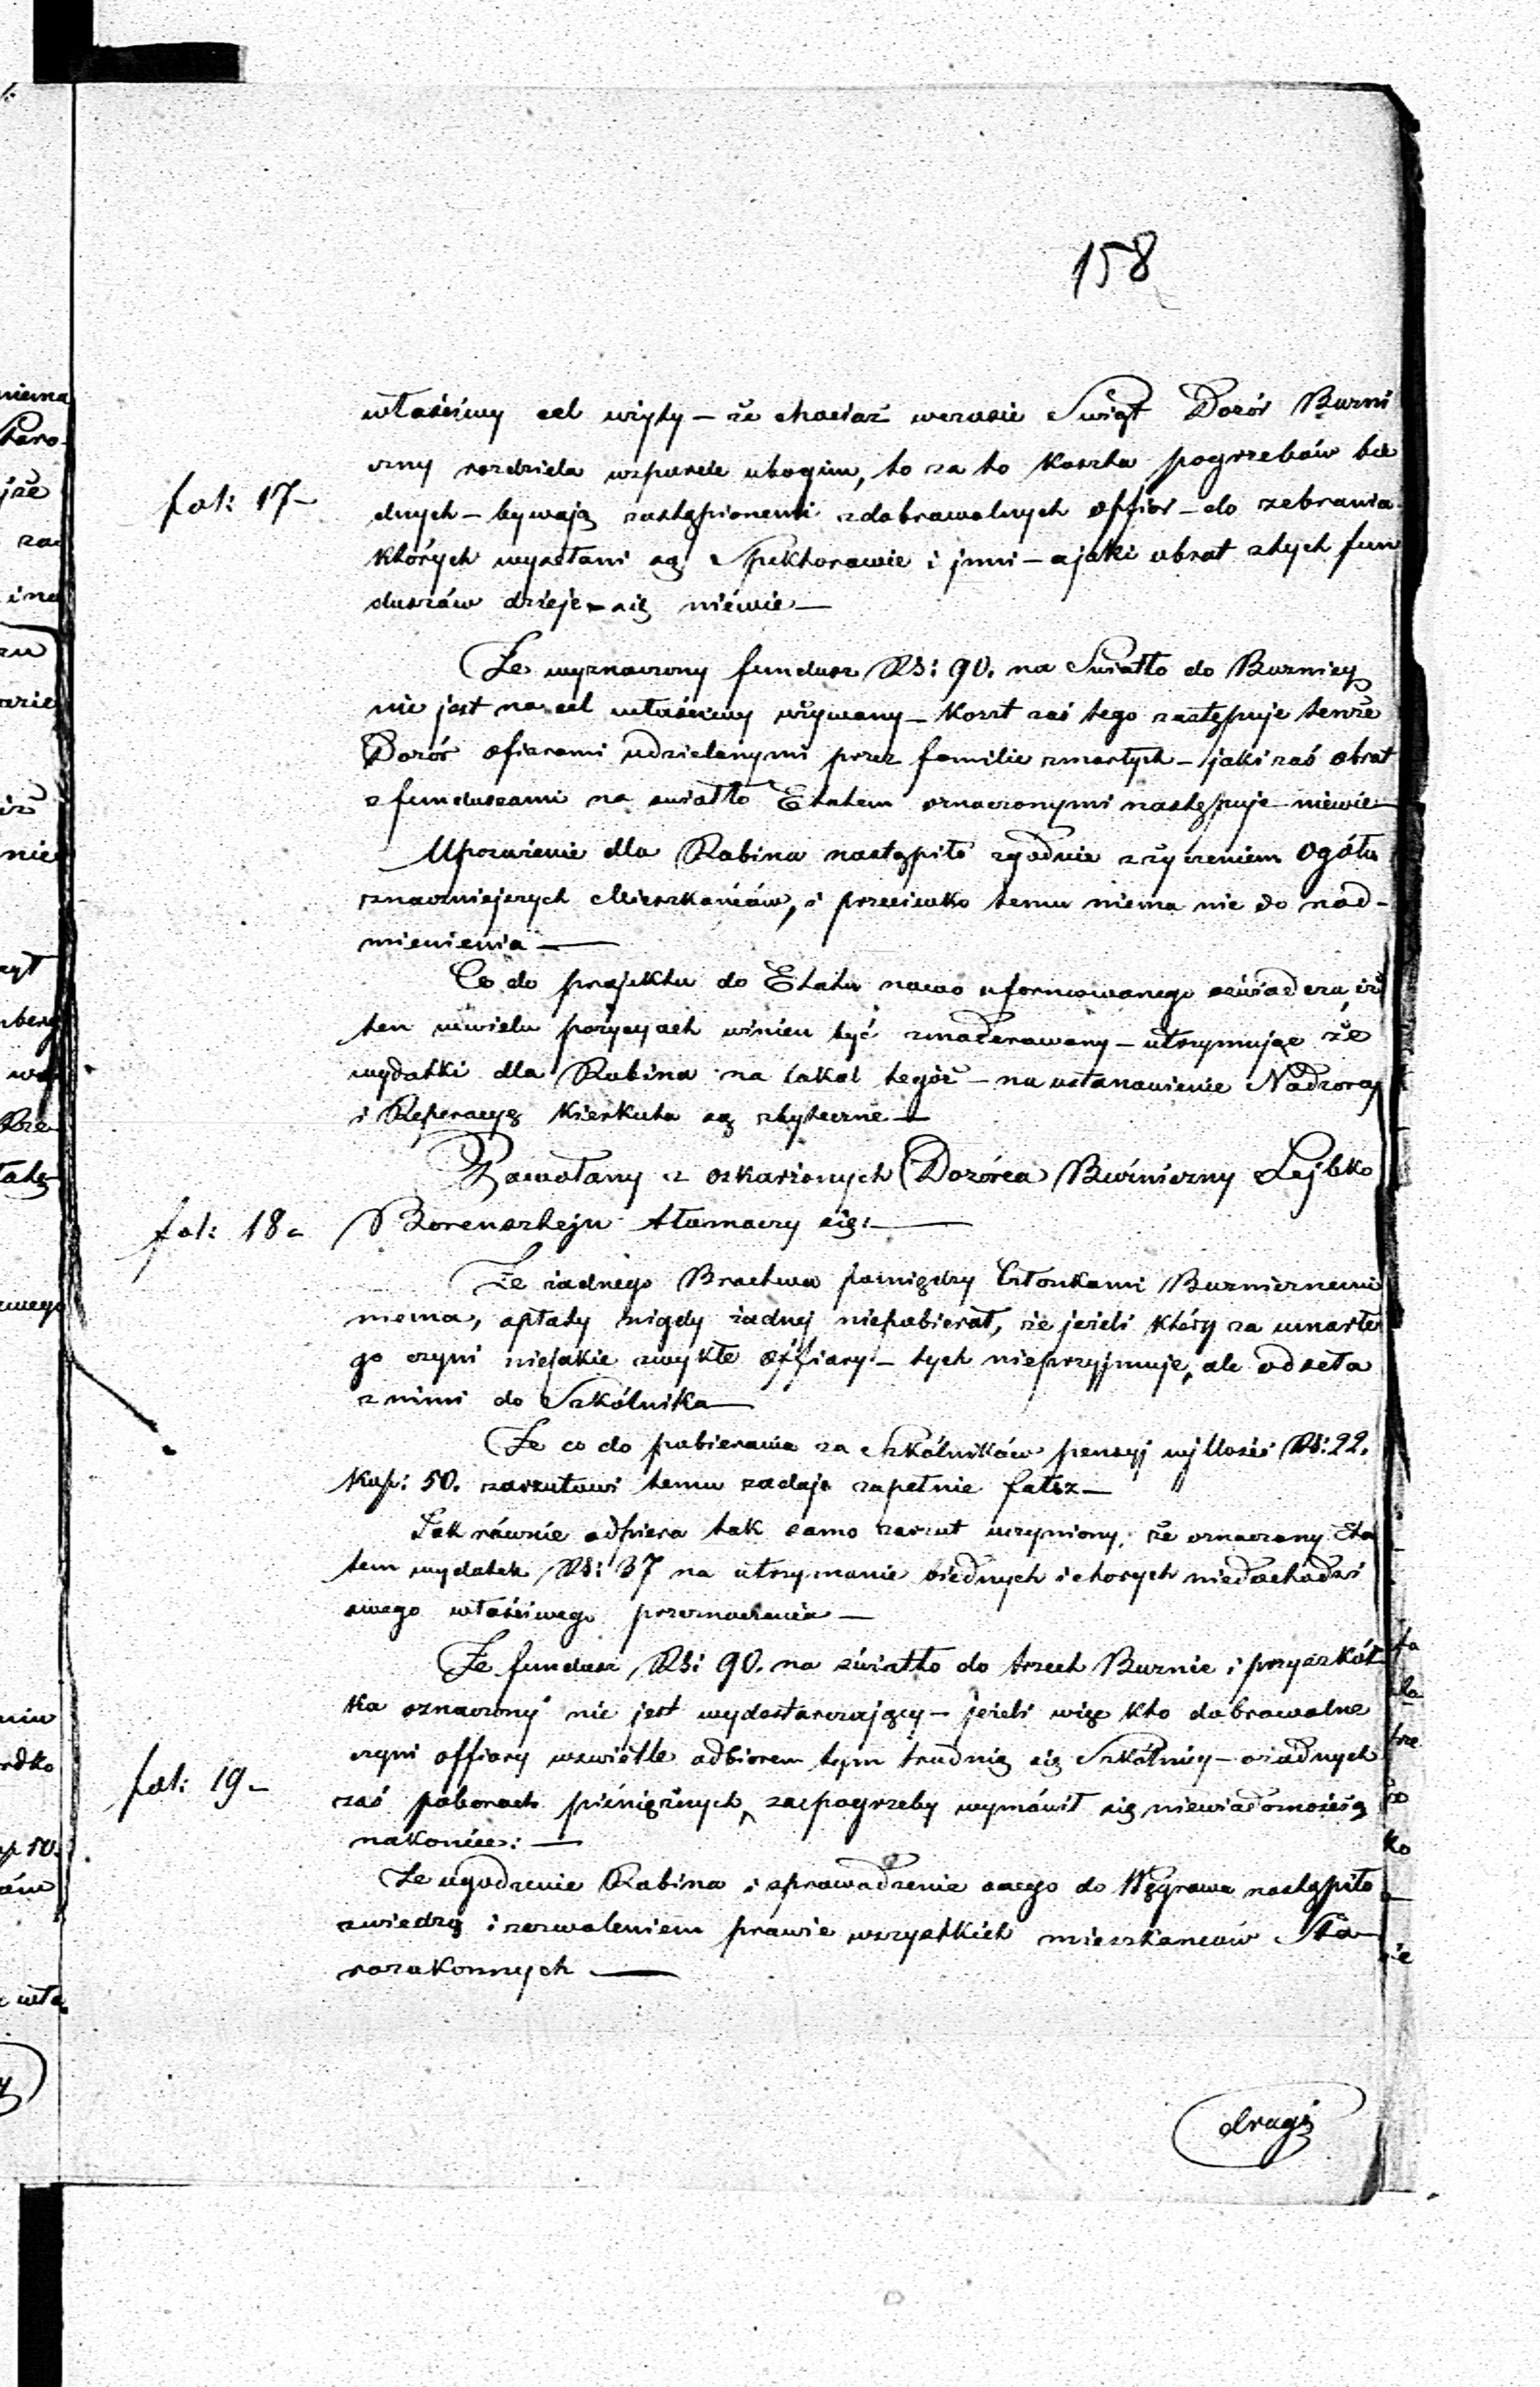 158
właściwy cel użyty – że chociaż wczasie Swiąt Dozór Bużni
czny rozdziela wsparcie ubogim, to za to koszta pogrzebów bie
fol: 17 –
dnych – bywają zastąpionemi zdobrowolnych offiar – do zebrania
których wysełani są Spektorowie i jnni – a jaki obrot ztych fun
duszów dzieje się niewie –
Że wyznaczony fundusz RS: 90. na Swiatło do Bużnicy
nie jest na cel właściwy używany – koszt zaś tego zastępuje tenże
Dozór ofiarami udzielanymi przez familie zmarłych – jaki zaś obrot
z funduszami na swiatło Etatem oznaczonymi następuje niewie –
Uposażenie dla Rabina nastąpiło zgodnie zżyczeniem Ogółu
znaczniejszych Mieszkańców, i przeciwko temu niema nic do nad-
mienienia –
Co do projektu do Etatu nowo uformowanego oświadcza, iż
ten wwielu pozycyach winien być zmoderowany – utrzymując że
wydatki dla Rabina na lokal tegóż – na ustanowienie Nadzorcy
i Reperacyę Kierkuta są zbyteczne –
Zawołany z oskarżonych Dozórca Bóżniczny Lejbko
fol: 18 –
Borensztejn tłumaczy się: –
Że żadnego Bractwa pomiędzy Członkami Bużnicznemi
niema, opłaty nigdy żadnej niepobierał, że jeżeli który za umarłe
go czyni niejakie zwykłe offiary – tych nieprzyjmuje, ale odseła
z nimi do Szkólnika –
Że co do pobierania za Szkólników pensyj wjllości RS: 22.
Kop: 50. zarzutowi temu zadaje zupełnie fałsz –
Jak równie odpiera tak samo zarzut uczyniony, że oznaczony Eta
tem wydatek RS: 37 na utrzymanie biednych i chorych niedochodzi
swego właściwego przeznaczenia –
Że fundusz RS: 90. na światło do trzech Bużnic i przyszkół
ka oznaczony nie jest wydostarczający – jeżeli więc kto dobrowolne
czyni offiary wświetle odbiorem tym trudnią się Szkólnicy – ożadnych
fol: 19 –
zaś poborach pieniężnych zaspogrzeby wymówił się niewiadomością
nakoniec: –
Że ugodzenie Rabina i sprowadzenie onego do Węgrowa nastąpiło
zwiedzą i zezwoleniem prawie wszystkich mieszkanców Sta-
rozakonnych –
drugi